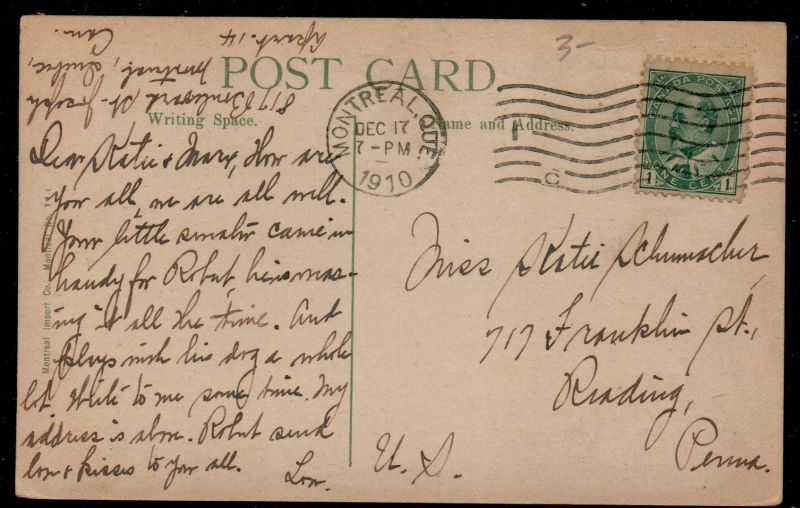 817 Boulevard St. Joseph
Montreal, Quebec,
Apart. 14 Can.
3-
POST CARD
Writing Space.
Name and Address.
MONTREAL, QUE.
DEC 17
7-PM
1910
C
CANADA POSTAGE
1 ONE CENT 1
Dear Katie & Mary, How are
you all, we are all well.
Your little sweater came in
handy for Robert, he is
it all the time. And
plays with his dog a whole
lot. Write to me some time. My
address is above. Robert send
love & kisses to you all.
Lou.
Miss Katie Schumacher,
717 Franklin St.,
Reading,
Penna.
U. S.
Montreal Import Co., Montreal No.